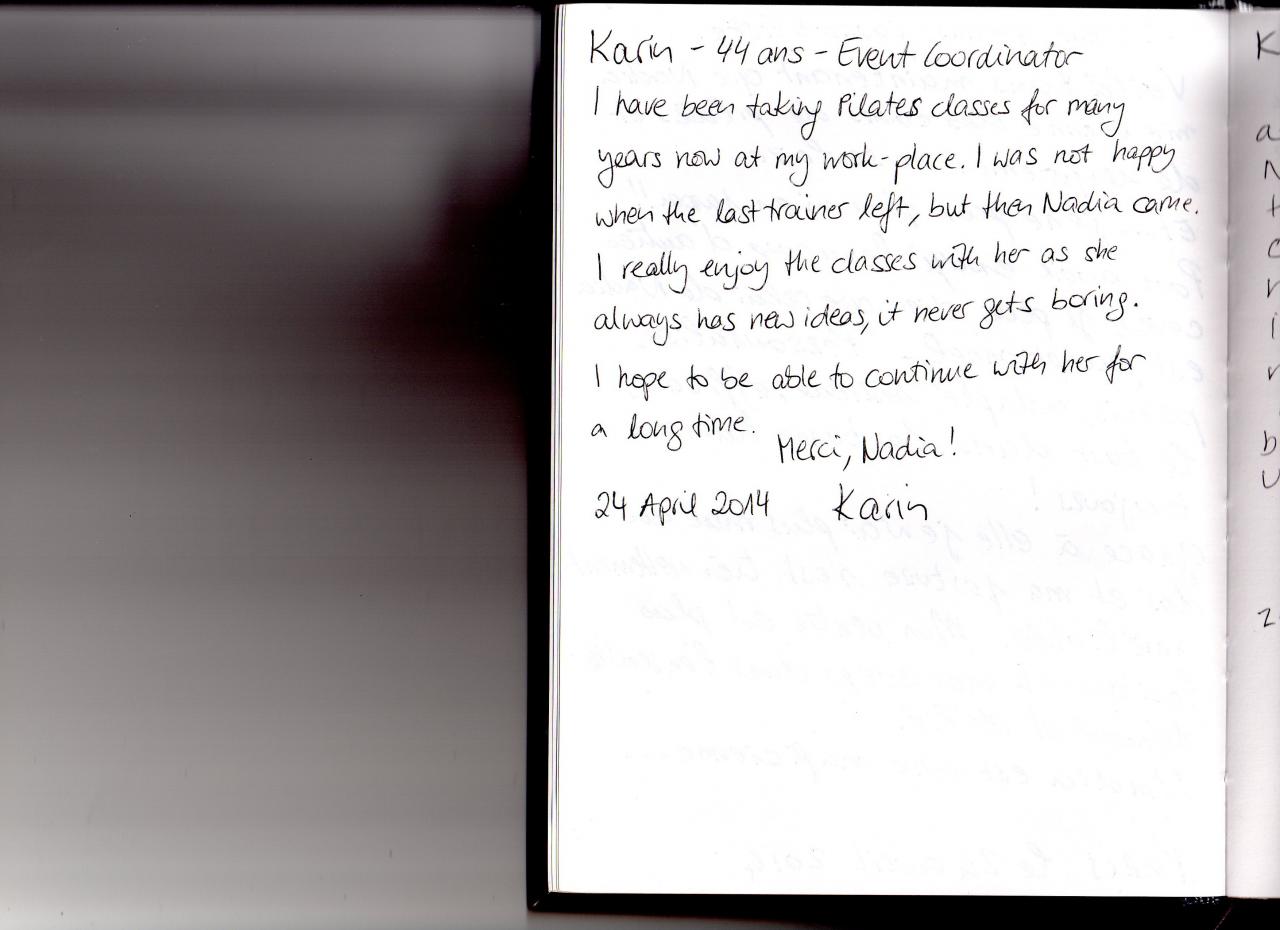 Karin - 44 ans - Event Coordinator
I have been taking Pilates classes for many
years now at my work-place. I was not happy
when the last trainer left, but then Nadia came.
I really enjoy the classes with her as she
always has new ideas, it never gets boring.
I hope to be able to continue with her for
a long time.
Merci, Nadia!
24 April 2014 Karin